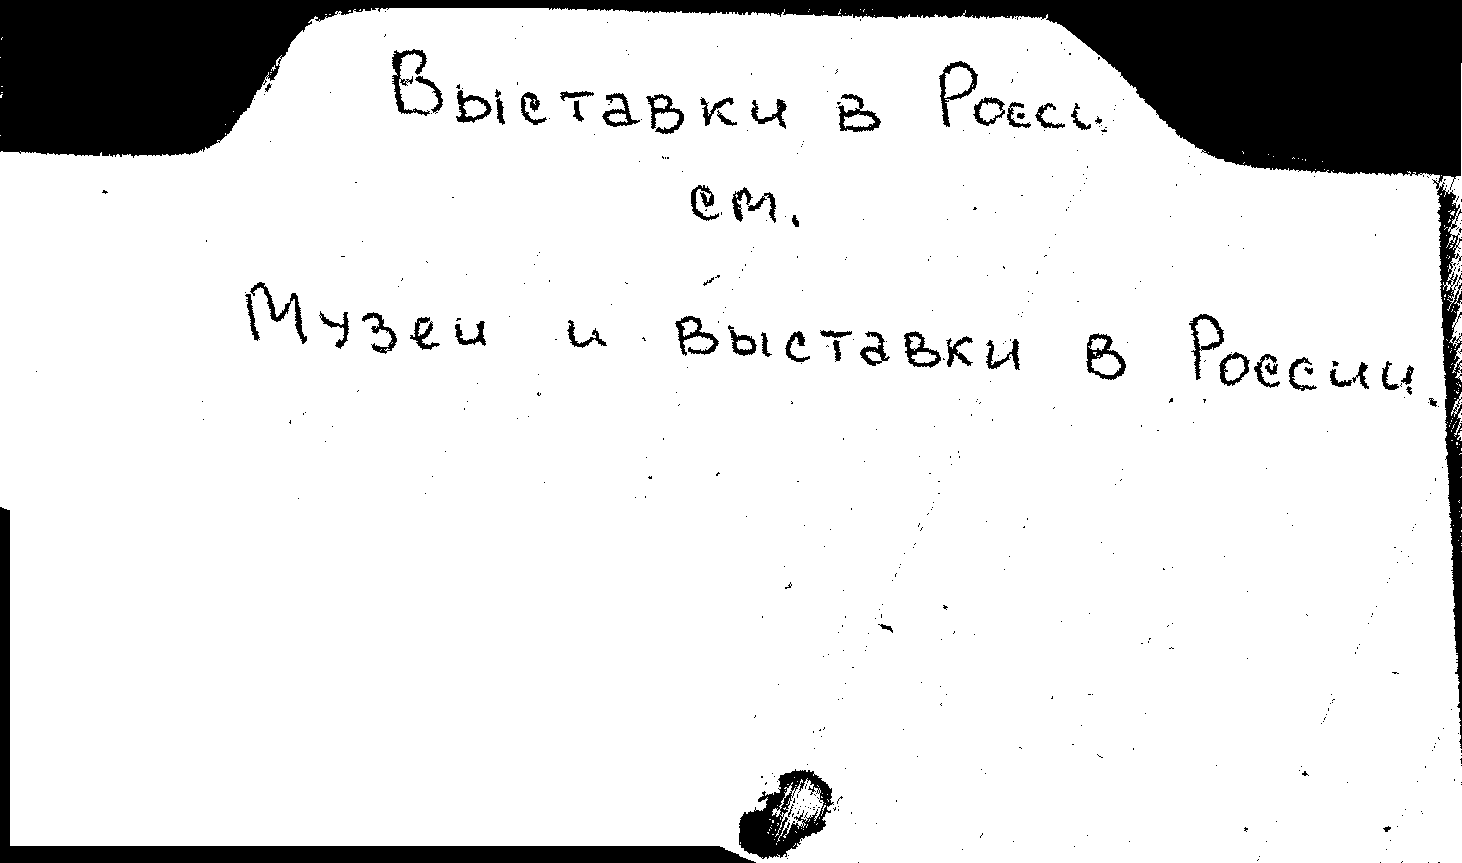 Выставки в Росси
см.
Музеи и выставки в России.